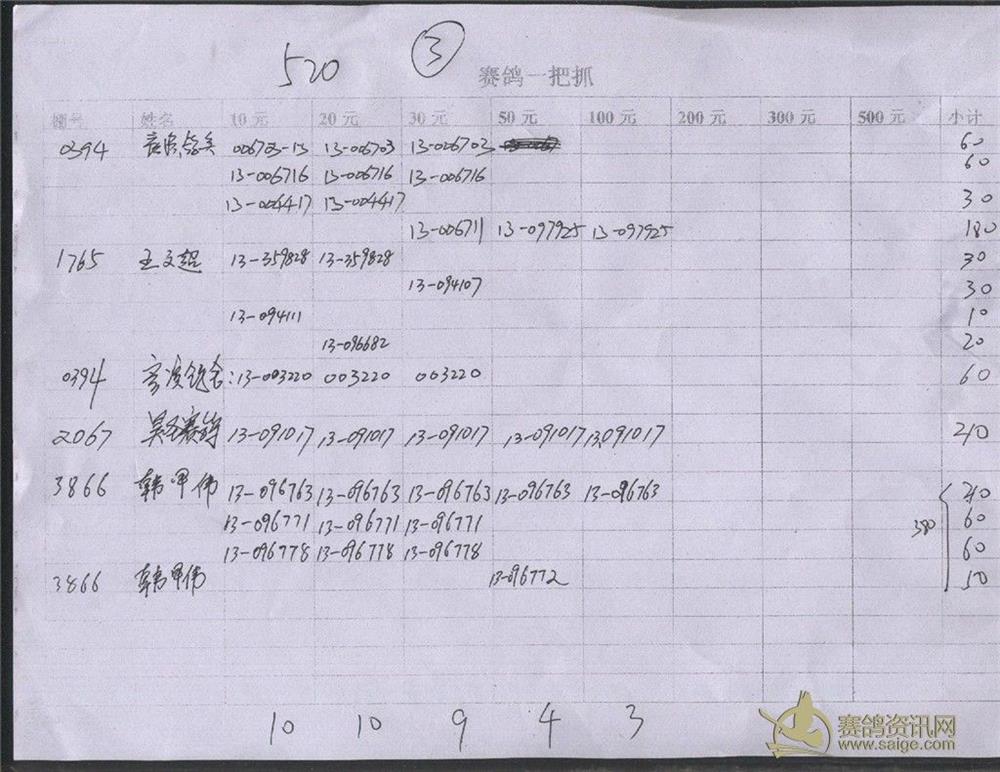 520 ③
赛鸽一把抓
棚号 姓名 10元 20元 30元 50元 100元 200元 300元 500元 小计
0394 006703-13 13-006703 13-006703 60
13-006716 13-006716 13-006716 60
13-004417 13-004417 30
13-006711 13-097925 13-097925 180
1765 王文超 13-359828 13-359828 30
13-094107 30
13-094111 10
13-096682 20
0394 :13-003220 003220 003220 60
2067 13-091017 13-091017 13-091017 13-091017 13,091017 210
3866 韩甲伟 13-096763 13-096763 13-096763 13-096763 13-096763 210
13-096771 13-096771 13-096771 380 60
13-096778 13-096778 13-096778 60
3866 韩甲伟 13-096772 50
10 10 9 4 3
赛鸽资讯网
www.saige.com